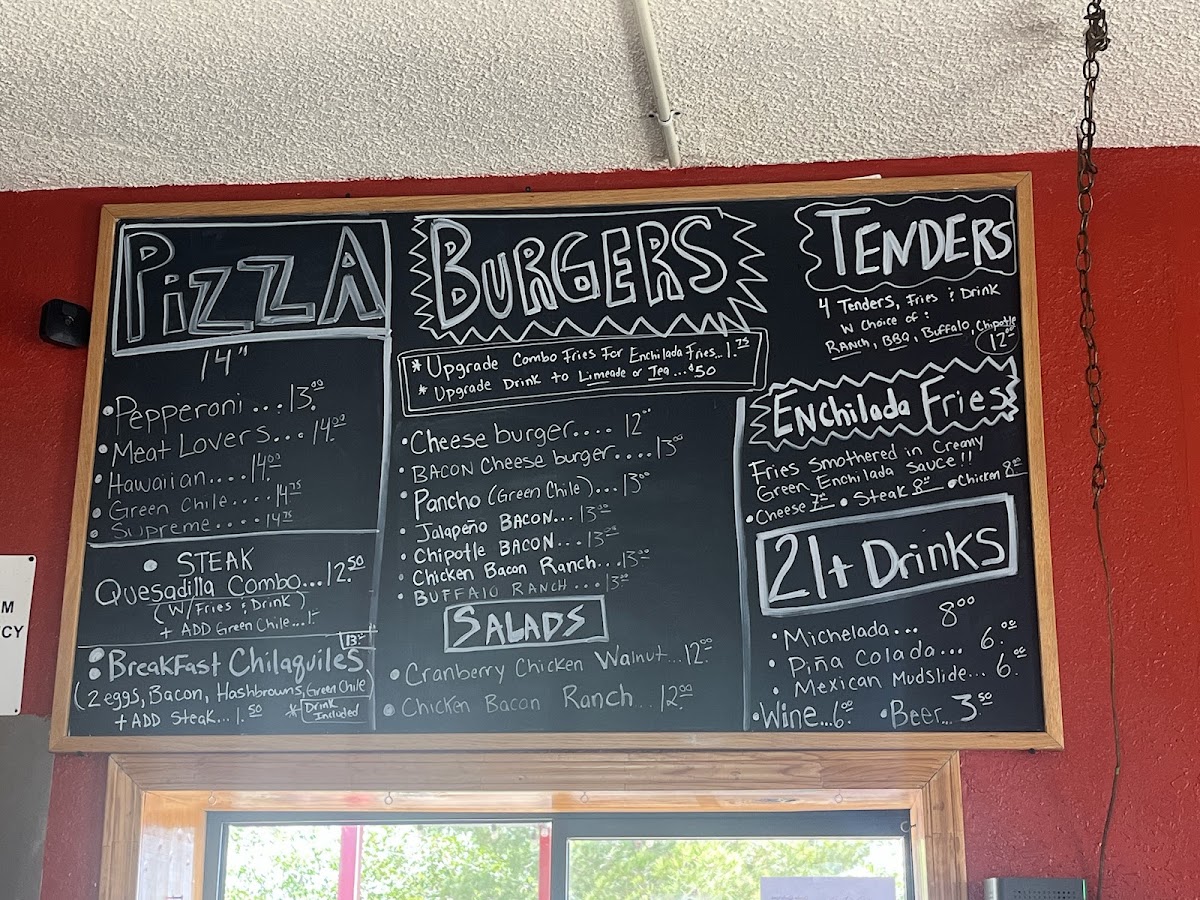 PIZZA
14"
• Pepperoni...13.00
• Meat Lovers...14.00
• Hawaiian....14.00
• Green Chile....14.75
• Supreme....14.75
• STEAK
Quesadilla Combo...12.50
(W/Fries & Drink)
+ ADD Green Chile...1.-
13.-
• BreakFast Chilaquiles
(2 eggs, Bacon, Hashbrowns, Green Chile)
+ ADD Steak...1.50
* Drink Included
BURGERS
* Upgrade Combo Fries For Enchilada Fries...1.75
* Upgrade Drink to Limeade or Tea...$.50
• Cheese burger.... 12.00
• BACON Cheese burger....13.00
• Pancho (Green Chile)...13.00
• Jalapeño BACON...13.00
• Chipotle BACON...13.00
• Chicken Bacon Ranch...13.00
• BUFFALO RANCH...13.00
SALADS
• Cranberry Chicken Walnut...12.00
• Chicken Bacon Ranch...12.00
TENDERS
4 Tenders, Fries & Drink
W Choice of:
RANCH, BBQ, Buffalo, Chipotle
12.00
Enchilada Fries
Fries Smothered in Creamy
Green Enchilada Sauce!!
• Cheese • Steak • Chicken
21+ Drinks
• Michelada... 8.00
• Piña Colada... 6.00
• Mexican Mudslide... 6.00
• Wine...6.00 • Beer...3.50
M
CY